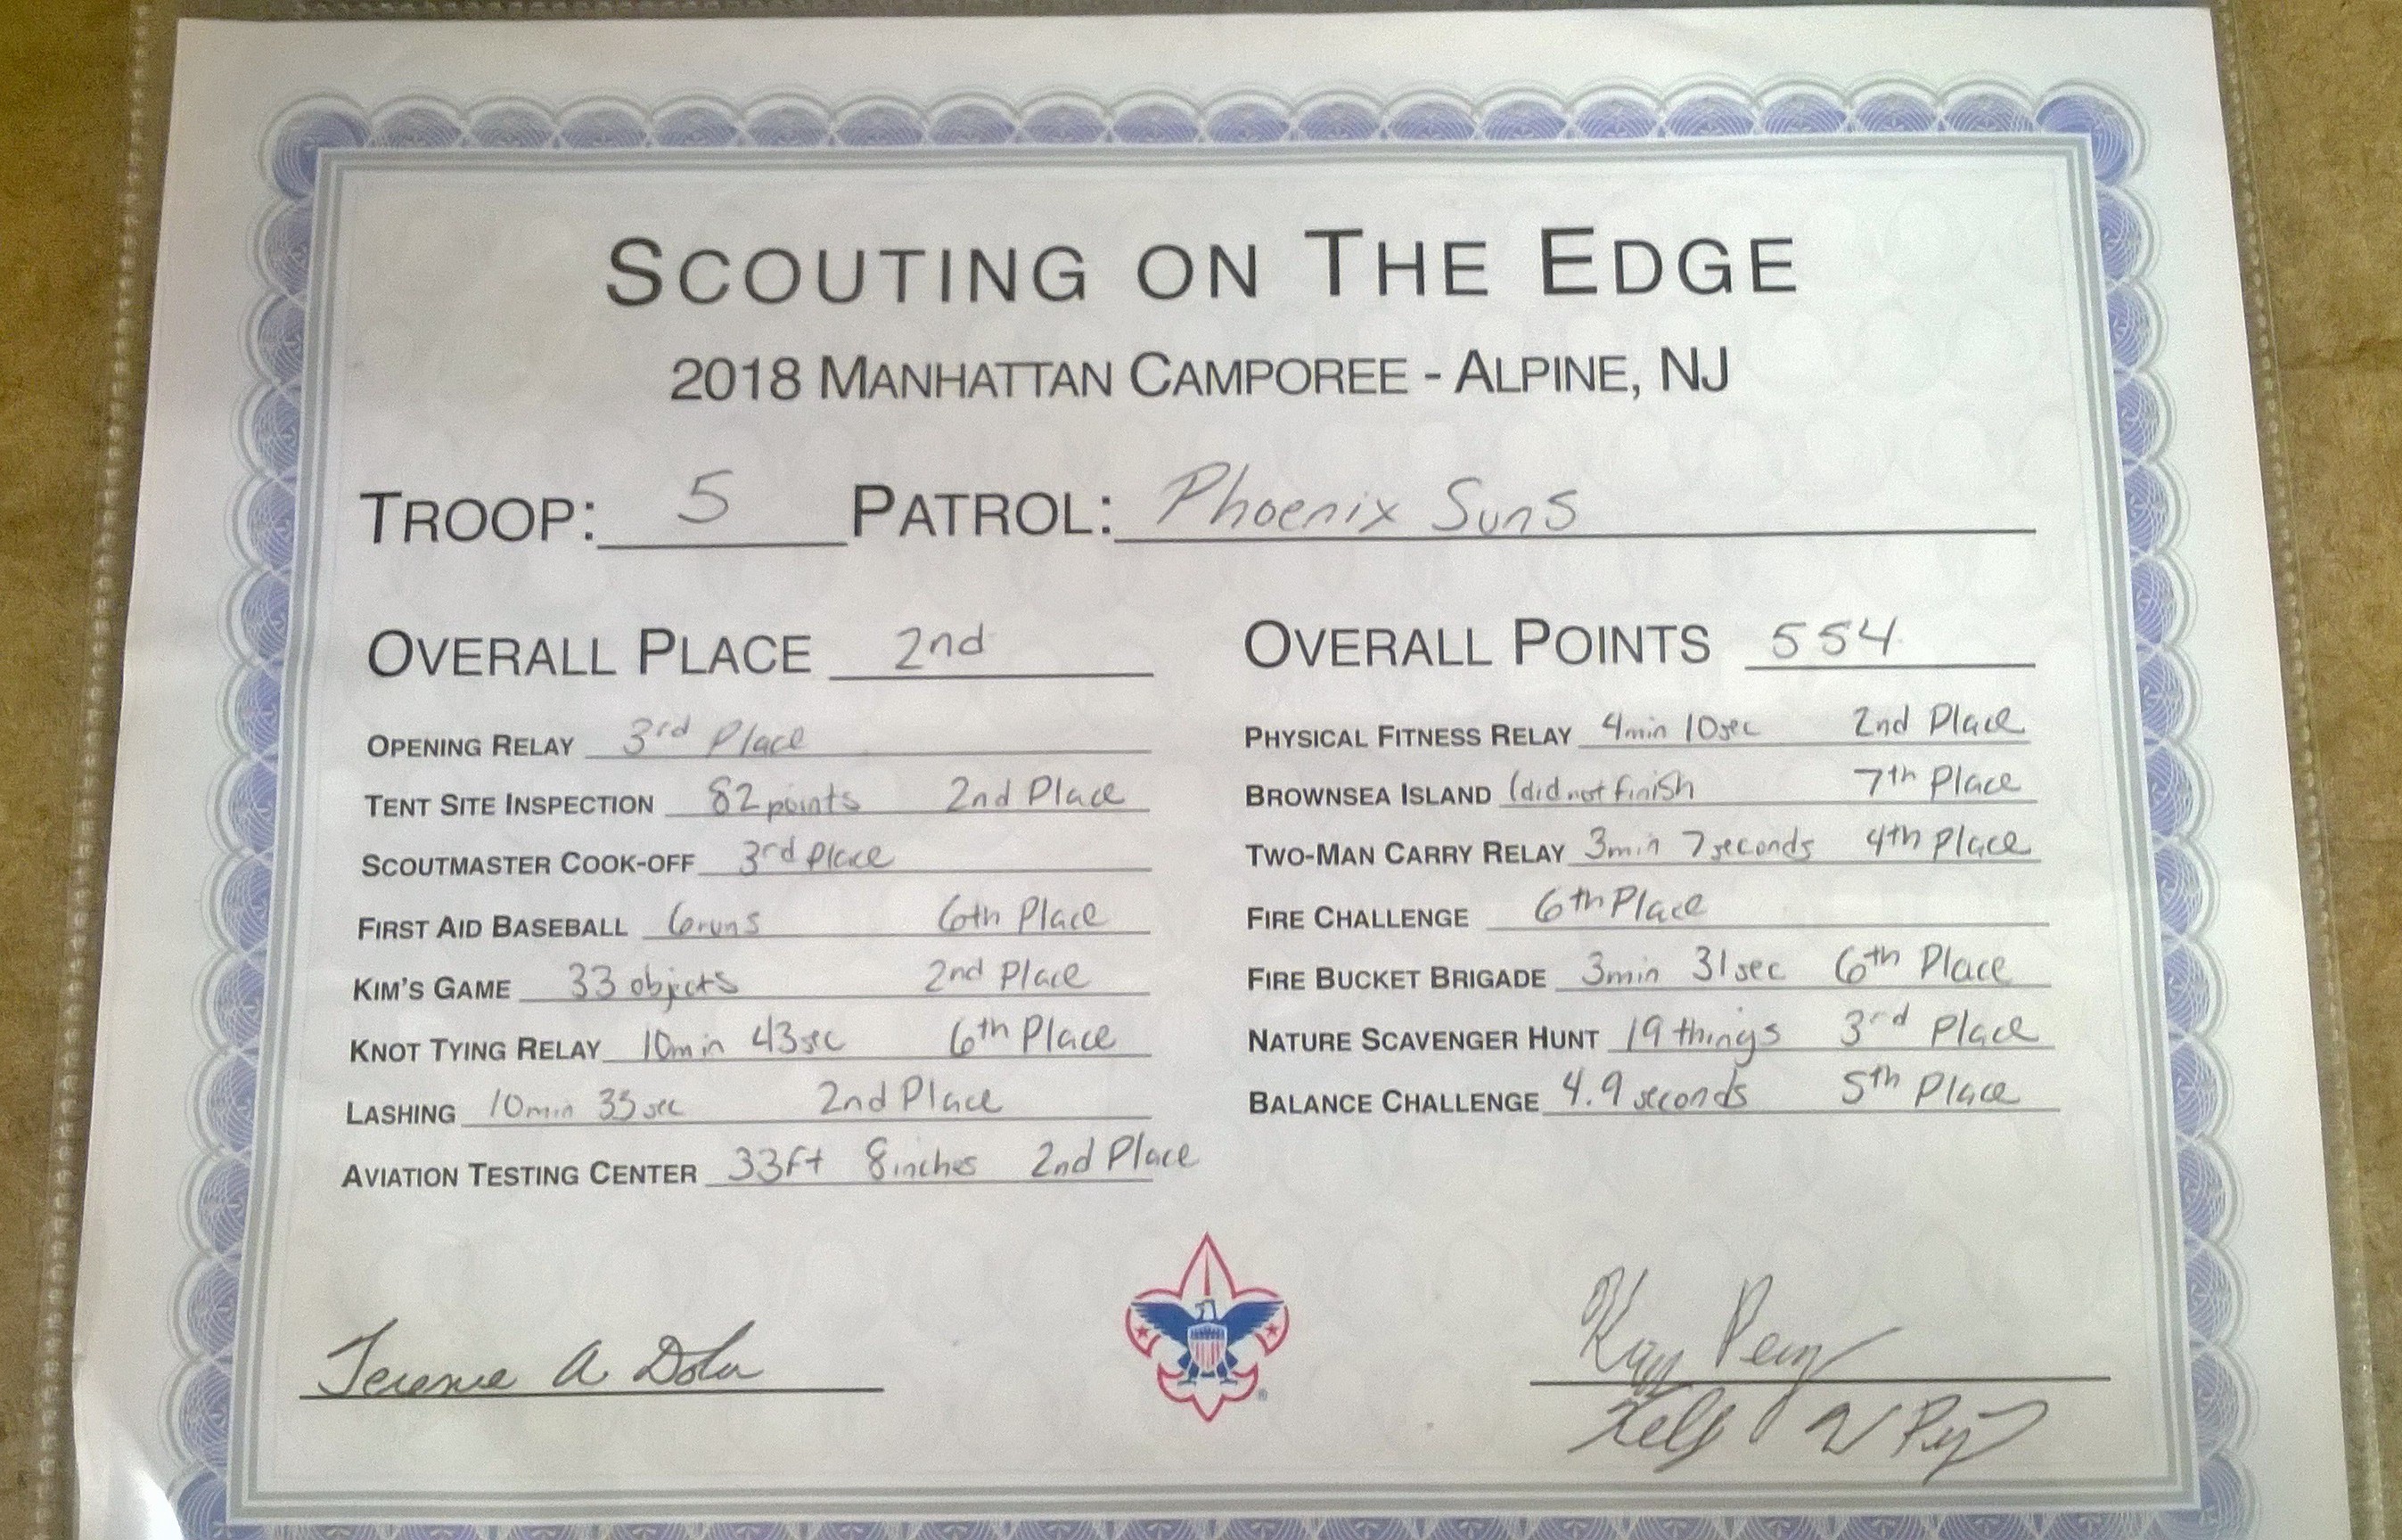 SCOUTING ON THE EDGE
2018 MANHATTAN CAMPOREE - ALPINE, NJ
TROOP: 5 PATROL: Phoenix Suns
OVERALL PLACE 2nd
OPENING RELAY 3rd Place
TENT SITE INSPECTION 82 points 2nd Place
SCOUTMASTER COOK-OFF 3rd Place
FIRST AID BASEBALL 6 runs 6th Place
KIM'S GAME 33 objects 2nd Place
KNOT TYING RELAY 10min 43sec 6th Place
LASHING 10min 35sec 2nd Place
AVIATION TESTING CENTER 33ft 8inches 2nd Place
OVERALL POINTS 554
PHYSICAL FITNESS RELAY 4min 10sec 2nd Place
BROWNSEA ISLAND (did not finish 7th Place
TWO-MAN CARRY RELAY 3min 7seconds 4th Place
FIRE CHALLENGE 6th Place
FIRE BUCKET BRIGADE 3min 31sec 6th Place
NATURE SCAVENGER HUNT 19 things 3rd Place
BALANCE CHALLENGE 4.9 seconds 5th Place
Terence A
®